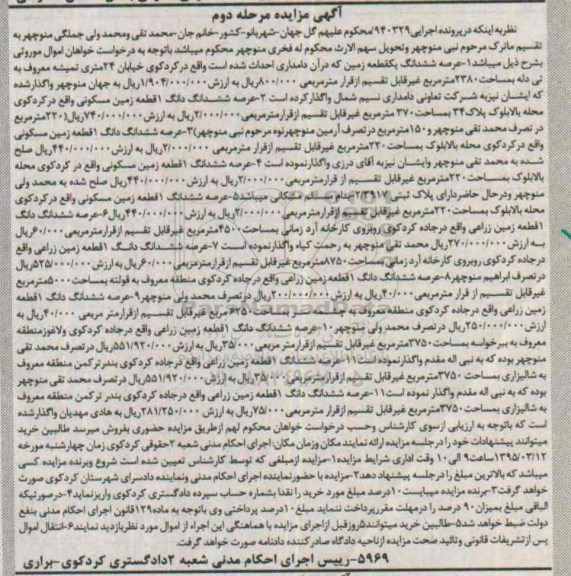 آگهی مزایده مرحله دوم
نظر به اینکه در پرونده اجرایی ۹۴۰۳۲۹/محکوم علیهم گل جهان -شهربانو-کشور-خانم جان-محمد تقی ومحمد ولی جملگی منوچهر به
تقسیم ماترک مرحوم نبی منوچهر وتحویل سهم الارث محکوم له فخری منوچهر محکوم میباشد باتوجه به درخواست خواهان اموال موروثی
بشرح ذیل میباشد۱-عرصه ششدانگ یکقطعه زمین که در آن دامداری احداث شده است واقع در کردکوی خیابان ۲۴متری تمیشه معروف به
تی دله بمساحت۲۳۸۰مترمربع غیرقابل تقسیم ازقرار مترمربعی ۸۰۰/۰۰۰ریال به ارزش۱/۹۰۴/۰۰۰/۰۰۰ریال به جهان منوچهر واگذارشده
که ایشان نیزبه شرکت تعاونی دامداری نسیم شمال واگذارکرده است ۲-عرصه ششدانگ دانگ ۱قطعه زمین مسکونی واقع در کردکوی
محله بالابلوک پلاک۳۴ بمساحت۳۷۰ مترمربع غیرقابل تقسیم ازقرارمترمربعی۲/۰۰۰/۰۰۰ریال به ارزش۷۴۰/۰۰۰/۰۰۰ریال(۲۲۰مترمربع
در تصرف محمد تقی منوچهر و۱۵۰مترمربع در تصرف آرمین منوچهرنوه مرحوم نبی منوچهر)۳-عرصه ششدانگ دانگ ۱قطعه زمین مسکونی
واقع در کردکوی محله بالابلوک بمساحت۲۲۰مترمربع غیرقابل تقسیم ازقرار مترمربعی ۲/۰۰۰/۰۰۰ریال به ارزش۴۴۰/۰۰۰/۰۰۰ریال صلح
شده به محمد تقی منوچهر وایشان نیزبه آقای درزی واگذارنموده است ۴-عرصه ششدانگ ۱قطعه زمین مسکونی واقع در کردکوی محله
بالابلوک بمساحت۲۲۰مترمربع غیرقابل تقسیم از قرارمترمربعی۲/۰۰۰/۰۰۰ریال به ارزش۴۴۰/۰۰۰/۰۰۰ریال صلح شده به محمد ولی
منوچهر ودرحال حاضردارای پلاک ثبتی ۲/۳۹۱۷ بنام میباشد۵-عرصه ششدانگ ۱قطعه زمین مسکونی واقع در کردکوی
محله بالابلوک بمساحت۲۲۰مترمربع غیرقابل تقسیم ازقرارمترمربعی۲/۰۰۰/۰۰۰ریال به ارزش۴۴۰/۰۰۰/۰۰۰ریال۶-عرصه ششدانگ دانگ
۱قطعه زمین زراعی واقع در جاده کردکوی روبروی کارخانه آرد زمانی بمساحت۴۵۰۰مترمربع غیرقابل تقسیم ازقرارمترمربعی۶۰/۰۰۰ریال
به ارزش۲۷۰/۰۰۰/۰۰۰ریال محمد تقی منوچهر به رحمت کیاء واگذارنموده است ۷-عرصه ششدانگ دانگ ۱قطعه زمین زراعی واقع
درجاده کردکوی روبروی کارخانه آرد زمانی بمساحت۸۷۵۰مترمربع غیرقابل تقسیم ازقرارمترمربعی۶۰/۰۰۰ریال به ارزش۵۲۵/۰۰۰/۰۰۰ریال
در تصرف ابراهیم منوچهر۸-عرصه ششدانگ دانگ ۱قطعه زمین زراعی واقع درجاده کردکوی منطقه معروف به قولته بمساحت۵۰۰۰مترمربع
غیرقابل تقسیم از قرار مترمربعی۴۰/۰۰۰ریال به ارزش ۲۰۰/۰۰۰/۰۰۰ریال در تصرف محمد ولی منوچهر۹-عرصه ششدانگ دانگ ۱قطعه
زمین زراعی واقع درجاده کردکوی منطقه معروف به ۶۲۵۰مترمربع غیرقابل تقسیم ازقرارمتر مربعی ۴۰/۰۰۰ریال به
ارزش۲۵۰/۰۰۰/۰۰۰ریال در تصرف محمد ولی منوچهر۱۰-عرصه ششدانگ دانگ ۱قطعه زمین زراعی واقع درجاده کردکوی ولاغوزمنطقه
معروف به ببرخواسه بمساحت۳۷۵۰مترمربع غیرقابل تقسیم ازقرارمتر مربعی ۳۵/۰۰۰ریال به ارزش۵۵۱/۹۲۰/۰۰۰ریال در تصرف محمد تقی
منوچهر بوده که به نبی اله مقدم واگذارنموده است۱۱-عرصه ششدانگ دانگ ۱قطعه زمین زراعی واقع درجاده کردکوی بندرترکمن منطقه معروف
به شالیزاری بمساحت ۳۷۵۰مترمربع غیرقابل تقسیم ازقرارمترمربعی ۳۵/۰۰۰ریال به ارزش۵۵۱/۹۲۰/۰۰۰ریال در تصرف محمد تقی منوچهر
بوده که به نبی اله مقدم واگذار نموده است۱۱-عرصه ششدانگ دانگ ۱قطعه زمین زراعی واقع درجاده کردکوی بندر ترکمن منطقه معروف
به شالیزاری بمساحت ۳۷۵۰مترمربع غیرقابل تقسیم ازقرار مترمربعی ۷۵/۰۰۰ریال به ارزش ۲۸۱/۲۵۰/۰۰۰ریال به هادی مهدیان واگذارشده
است که باتوجه به ارزیابی ازسوی کارشناس وحسب درخواست خواهان محکوم لهم ازطریق مزایده حضوری بفروش میرسد طالبین خرید
میتوانند پیشنهادات خود را در جلسه مزایده ارائه نمایند مکان وزمان مکان: اجرای احکام مدنی شعبه ۲حقوقی کردکوی زمان چهارشنبه مورخه
۱۳۹۵/۰۳/۱۲ساعت۹ الی ۱۰ وقت اداری شرایط مزایده۱-مزایده ازمبلغی که توسط کارشناس تعیین شده است شروع وبرنده مزایده کسی
میباشد که بالاترین مبلغ را درجلسه پیشنهاد دهد۲-مزایده با حضورنماینده اجرای احکام مدنی ونماینده دادسرای شهرستان کردکوی صورت
خواهد گرفت۳-برنده مزایده میبایست۱۰درصد مبلغ مورد خرید را نقدا بشماره حساب سپرده دادگستری کردکوی واریزنماید۴-درصورتیکه
الباقی مبلغ بمیزان ۹۰ درصد را درمهلت مقررپرداخت ننماید مبلغ۱۰درصد پرداختی وی باتوجه به ماده۱۲۹قانون اجرای احکام مدنی بنفع
دولت ضبط خواهد شد۵-طالبین خرید میتوانند۵روزقبل ازاجرای مزایده با هماهنگی این اجراء از اموال مورد نظربازدید نمایند۶-انتقال اموال
پس ازتشریفات قانونی وتائید صحت مزایده ازناحیه دادگاه صادرکننده دادنامه صورت خواهد گرفت.
۵۹۶۹-رییس اجرای احکام مدنی شعبه ۲دادگستری کردکوی-براری